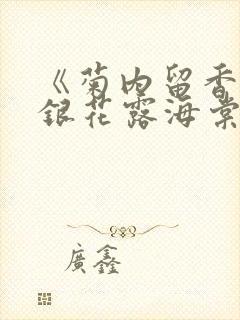 《菊内留香
銀花露海棠
廣鑫